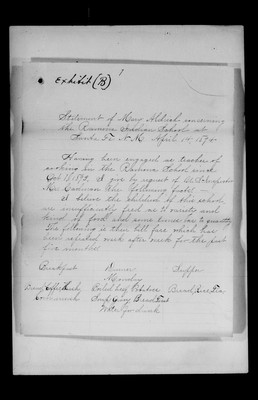 Exhibit (B)
Statement of Mary Aldrich concerning
the Ramona Indian School at
Santa Fe N.M. April 15, 1893
Having been engaged as teacher of
cooking in the Ramona School since
Oct 1892, I give by request of
Mr. the following facts: —
I believe the children of this school
are insufficiently fed as to variety and
kind of food and some times as to quantity
The following is their bill fare which has
been repeated week after week for the past
five months
Breakfast Dinner Supper
Monday
Bread Coffee Boiled beef Potatoes Bread Rice Tea
Soup Gravy Bread
Water for drink